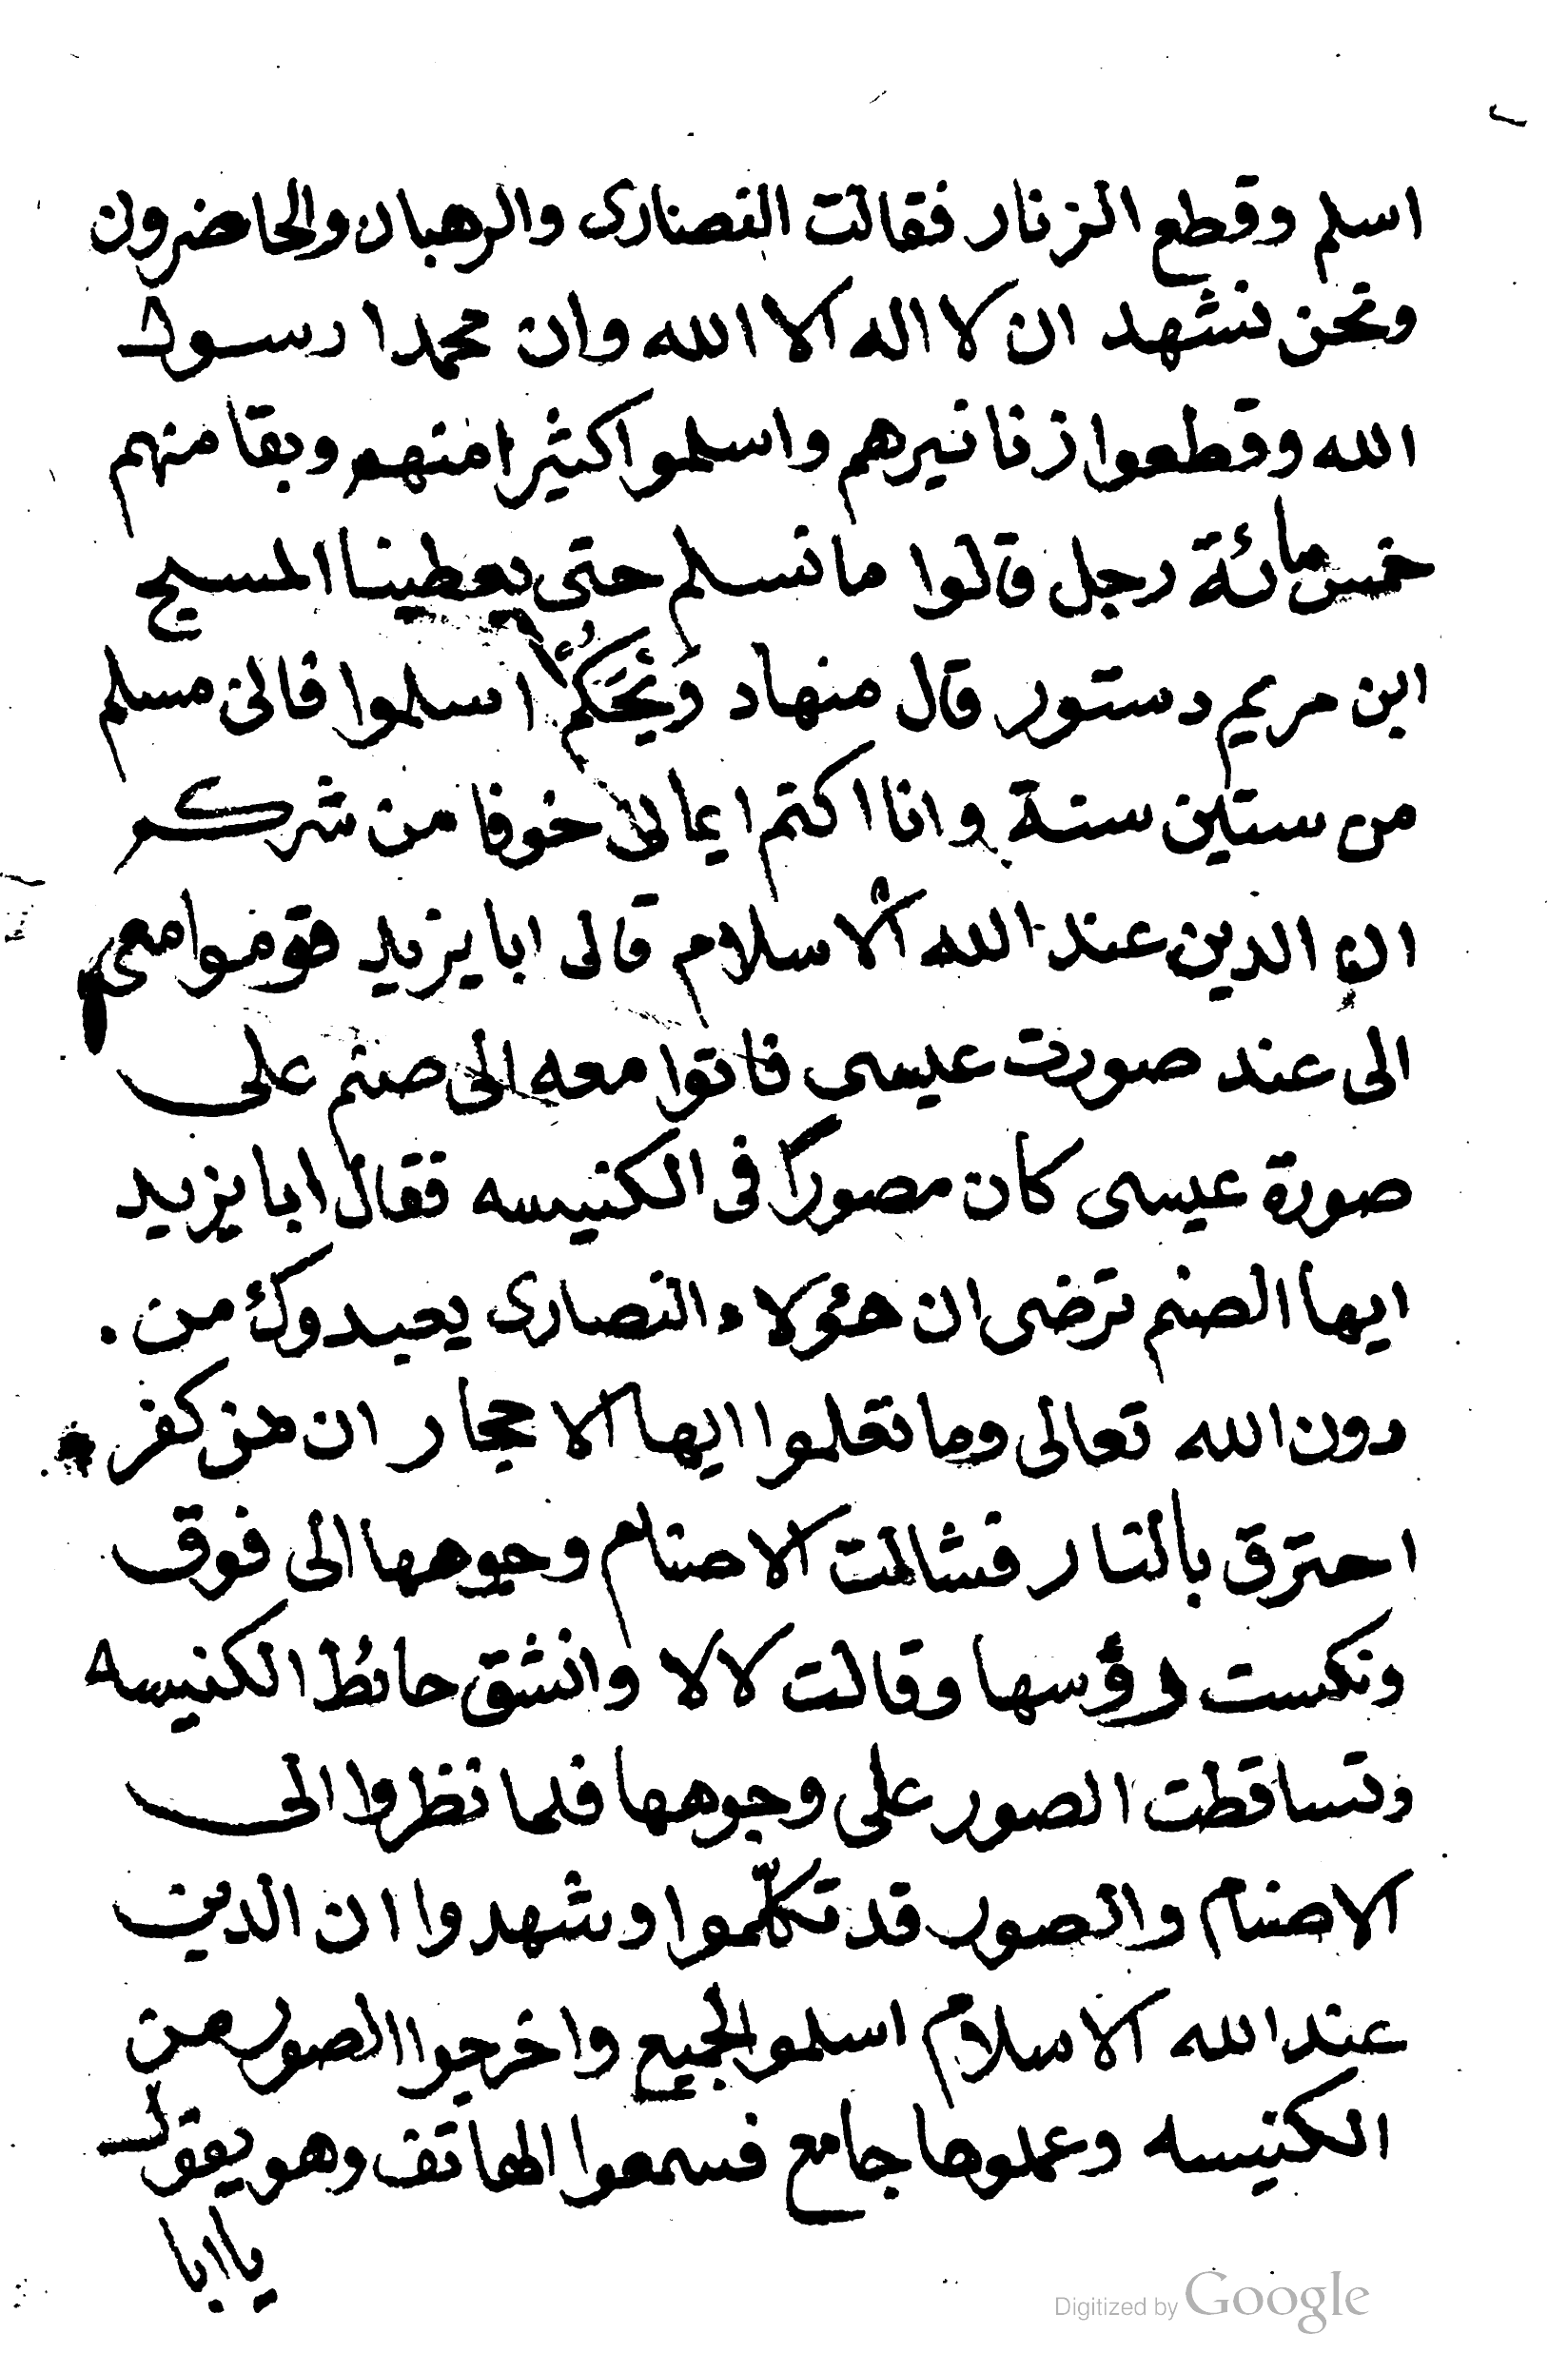 اسلم وقطع الزنار فقالت النصنارى والرهبان والحاضرون
ونحن نشهد ان لا اله الا الله وان محمدا رسول
الله وقطعوا زنانيرهم واسلموا كثيرا منهم وبقا منهم
خمس مائة رجل قالوا ما نسلم حتى يعطينا المسيح
ابن مريم دستور قال منهاد وَيْحَكُمْ اسلموا فانى مسلم
من ستين سنة وانا اكتم ايمانى خوفا من شركم
ان الدين عند الله الاسلام قال ابا يزيد قوموا معى
الى عند صورت عيسى فاتوا معه الى صنم على
صورة عيسى كان مصوراً فى الكنيسه فقال ابا يزيد
ايها الصنم ترضى ان هؤلاء النصارى يعبدوك من
دون الله تعالى وما تقلموا ايها الاحجار ان من كفر
احترق بالنار فشالت الاصنام وجوهها الى فوق
ونكست رؤسها وقالت لا لا وانشق حائط الكنيسه
وتساقطت الصور على وجوهها فلما نظروا الى
الاصنام والصور قد تكلّموا وشهدوا ان الدين
عند الله الاسلام اسلموا الجميع واخرجوا الصور من
الكنيسه وعملوها جامع فسمعوا الهاتف وهو يقول
يا ابا
Digitized by Google